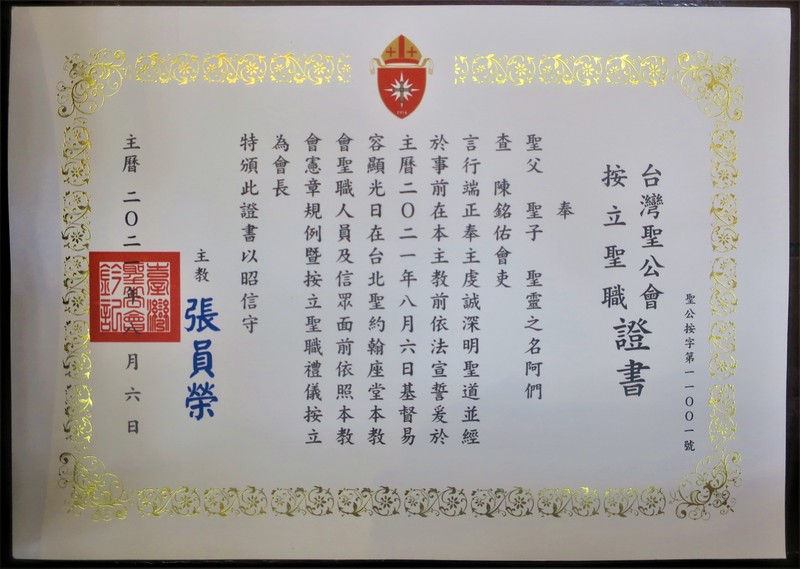 台灣聖公會
按立聖職證書
聖公按字第一一〇〇一號
奉
聖父 聖子 聖靈之名阿們
查 陳銘佑會吏
言行端正奉主虔誠深明聖道並經
於事前在本主教前依法宣誓爰於
主曆二〇二一年八月六日基督易
容顯光日在台北聖約翰座堂本教
會聖職人員及信眾面前依照本教
會憲章規例暨按立聖職禮儀按立
為會長
特頒此證書以昭信守
主教 張員榮
主曆 二〇二一年八月六日
臺灣聖公會鈐記